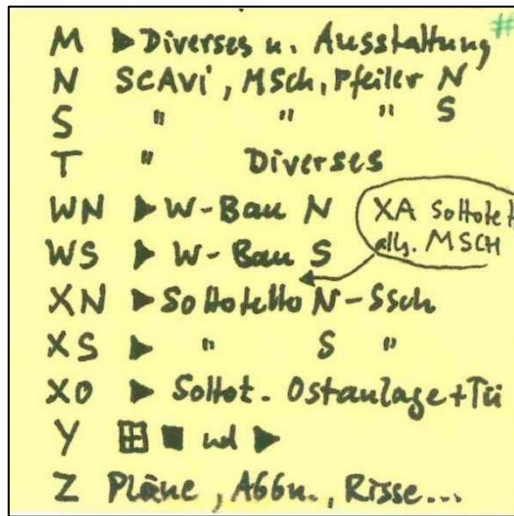 #
M ▶ Diverses u. Ausstattung
N SCAVi, MSch, Pfeiler N
S " " " S
T " Diverses
WN ▶ W-Bau N
XA Sottotet
allg. MSCH
WS ▶ W-Bau S
XN ▶ Sottotetto N-Ssch
XS ▶ " S "
XO ▶ Sottot. Ostanlage + Tü
Y ⊞ ■ und ▶
Z Pläne, Abbn., Risse...